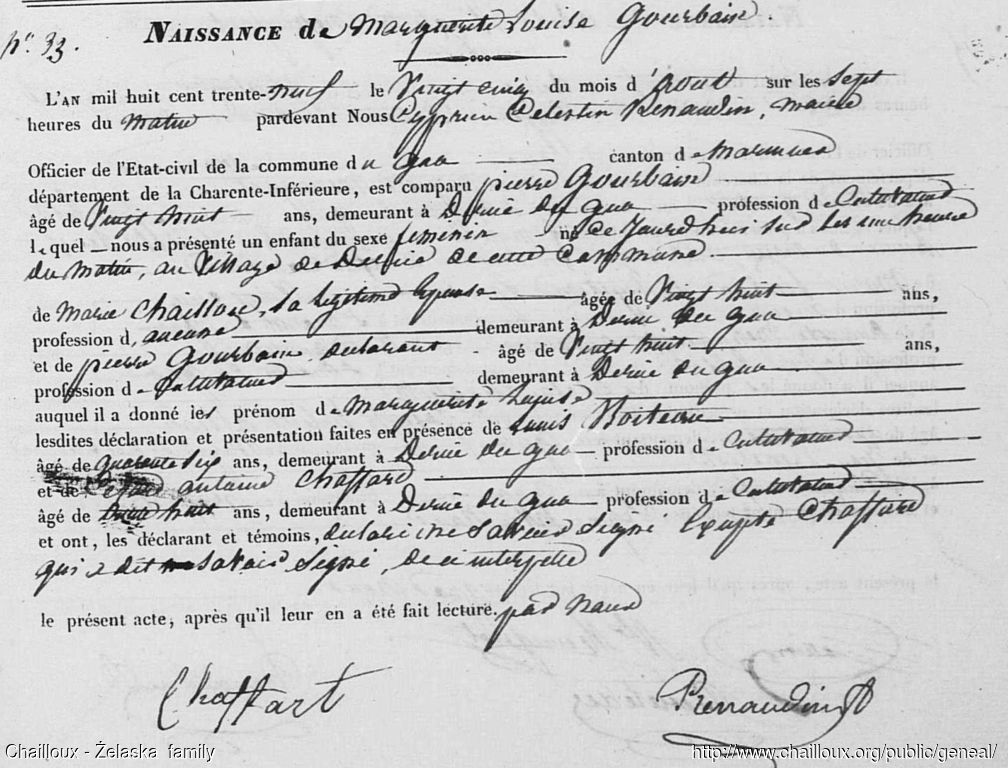 n.° 33.
NAISSANCE de Marguerite Louise Gourbain.
L'AN mil huit cent trente-neuf le Vingt cinq du mois d'aout sur les Sept
heures du Matin pardevant Nous Cyprien Celestin Renaudin, maire
Officier de l'Etat-civil de la commune du gua canton de Marennes
département de la Charente-Inférieure, est comparu pierre Gourbain
âgé de Vingt huit ans, demeurant à Dercie du gua profession de Cultivateur
lequel nous a présenté un enfant du sexe feminin né ce Jourd'huis sur les une heure
du Matin, au Village de Dercie de cette Commune.
de Marie Chailloux, Sa legitime Epouse âgée de Vingt huit ans,
profession d'aucune demeurant à Dercie du gua
et de pierre Gourbain declarant âgé de Vingt huit ans,
profession de Cultivateur demeurant à Dercie du gua
auquel il a donné les prénom de Marguerite Louise
lesdites déclaration et présentation faites en présence de Louis Boiteau
âgé de quarante Six ans, demeurant à Dercie du gua profession de Cultivateur
et de antoine Chaffard
âgé de trente huit ans, demeurant à Dercie du gua profession de Cultivateur
et ont, les déclarant et témoins, declaré ne Savoir Signé Excepté Chaffard
qui a dit Savoir Signé, de ce interpellé
le présent acte, après qu'il leur en a été fait lecture. par nous
Chaffart
Renaudin
Chailloux - Żelaska family
http://www.chailloux.org/public/geneal/